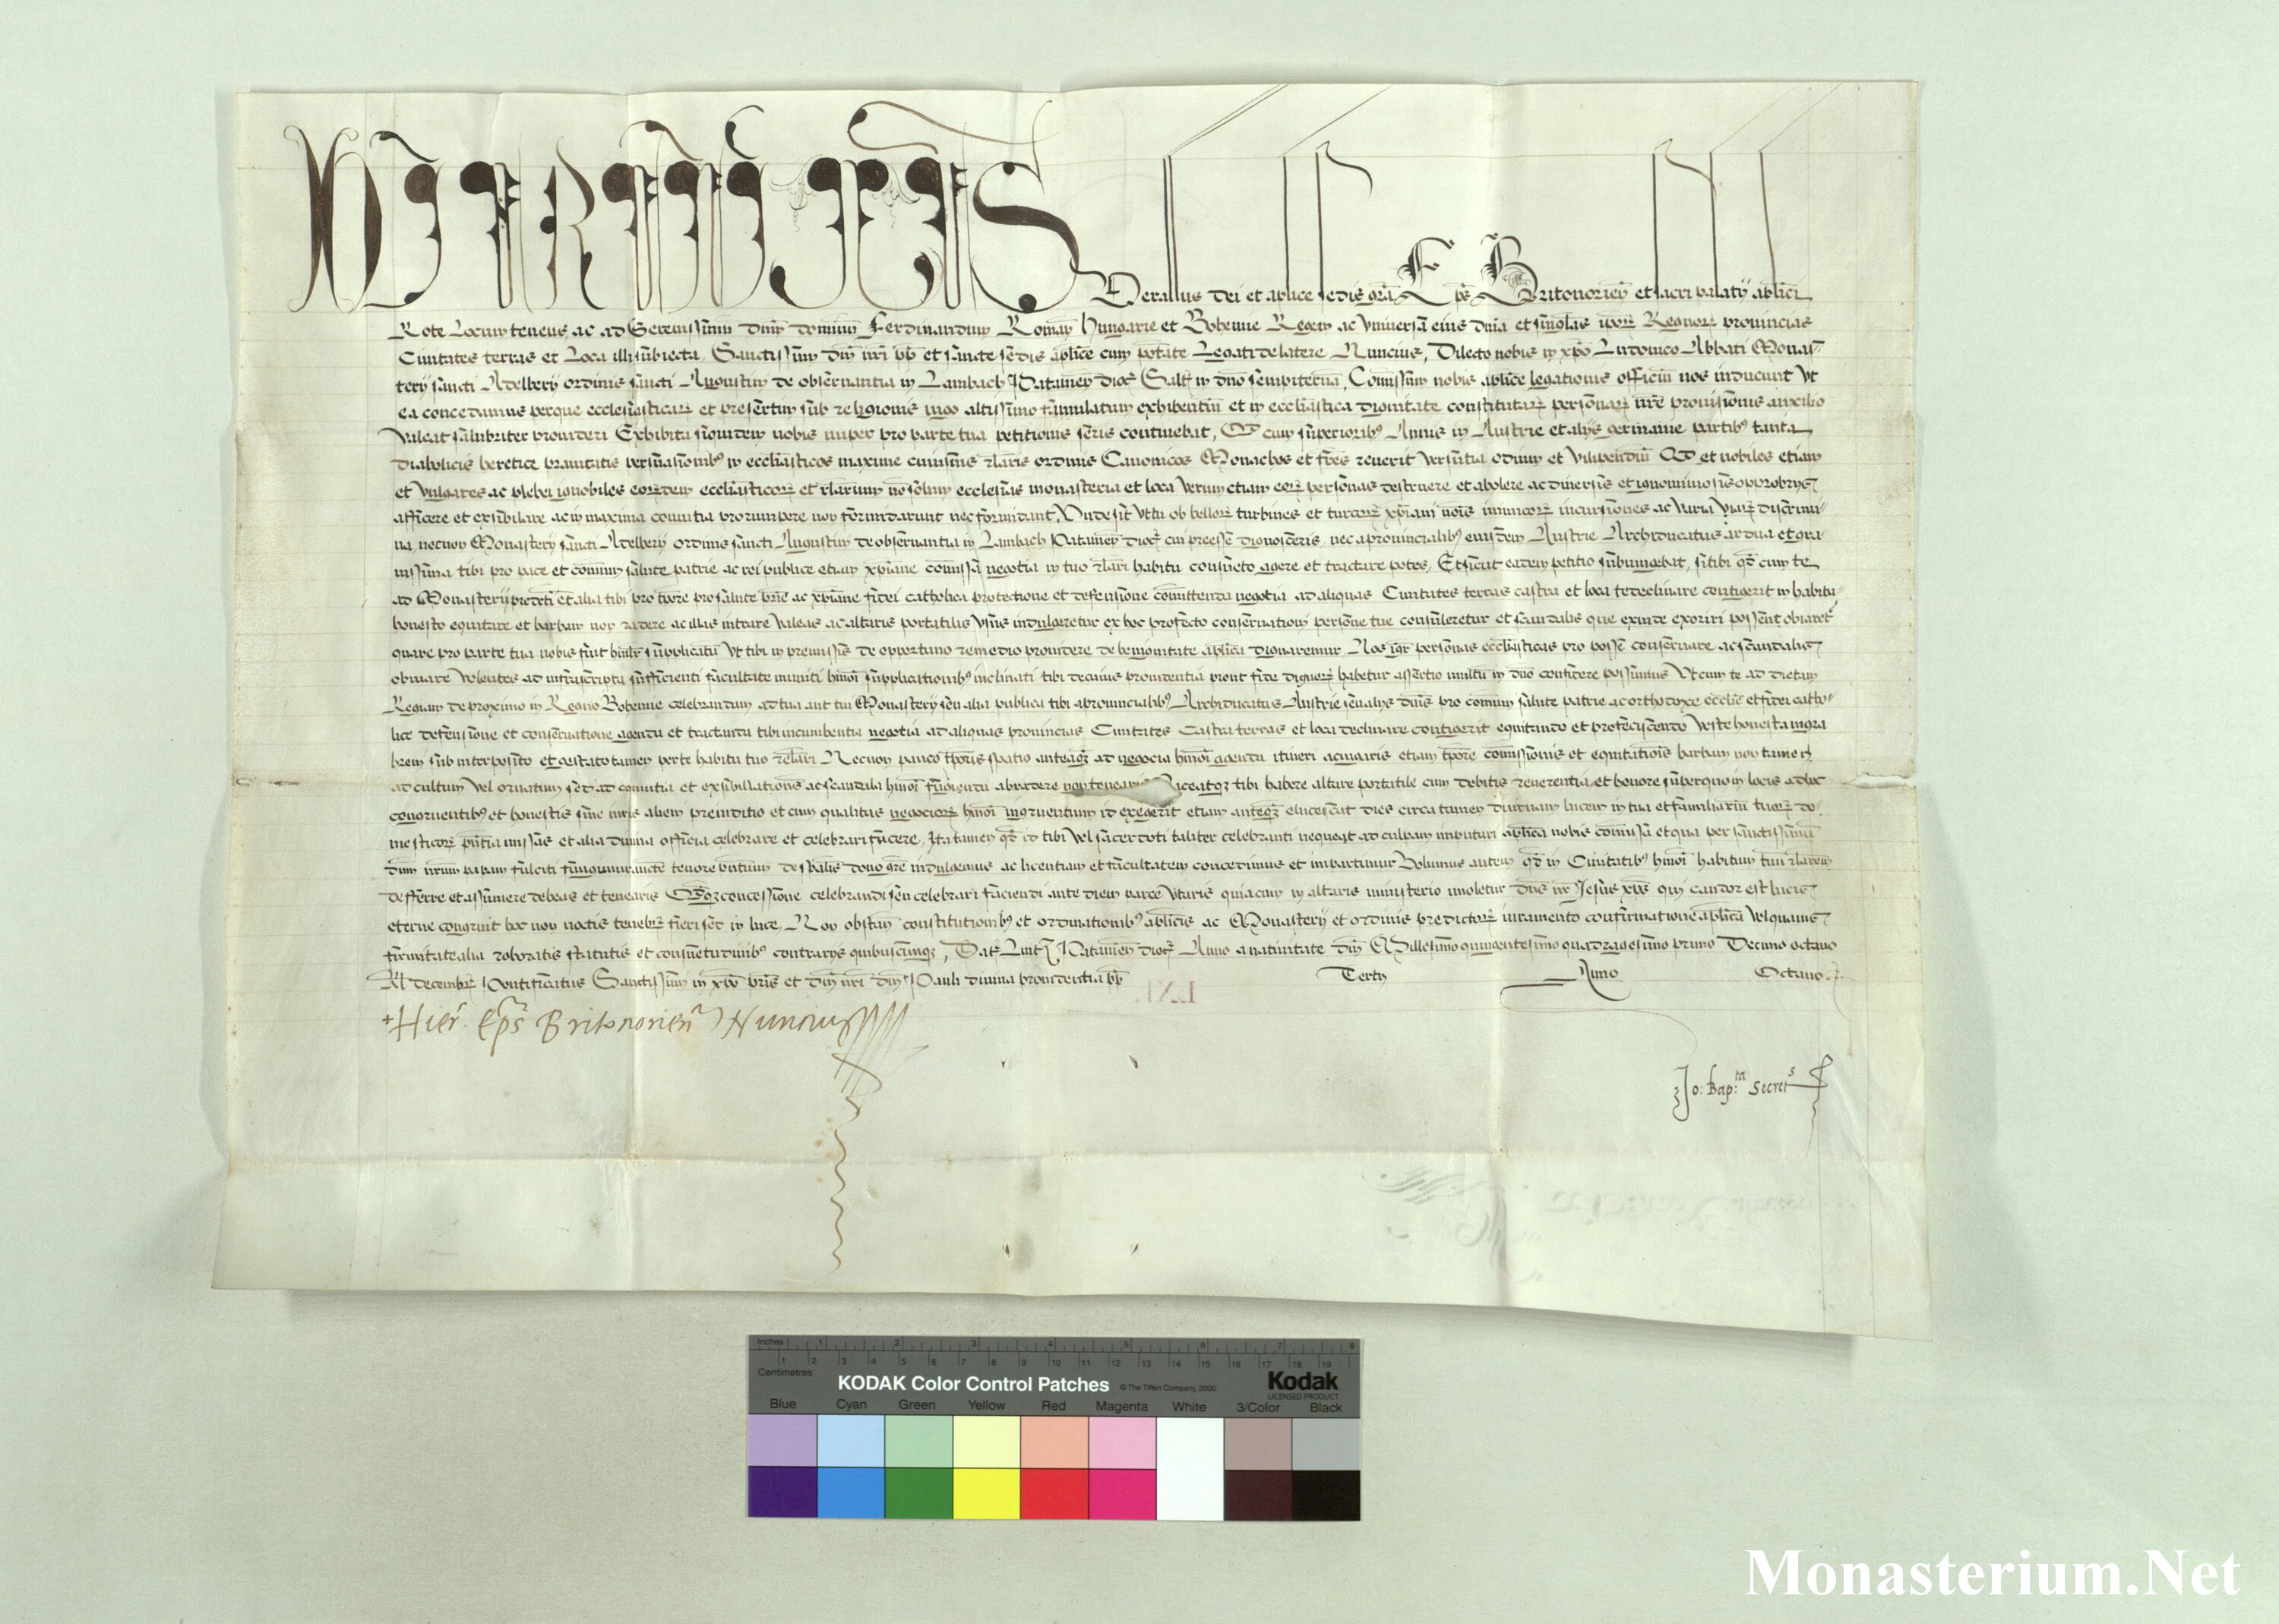 HIERONIMUS Verallus dei et aplice sedis gra Eps Britonorien et sacri palatij aplici
Rote Locumtenens, ac ad Serenissimum dnm dominum Ferdinandum Roman Hungarie et Bohemie Regem ac Universa eius dnia et singulas Regnor provincias
Civitates terras et Loca illi subiecta, Sanctissimi dni nri pp et sancte sedis aplice cum potate Legati de latere Nuncius, Dilecto nobis in xpo Ludovico Abbati Monas
terij sancti Adelberij ordinis sancti Augustini de observantia in Lambach Patavien dioc Salt in dno sempiternam, Comissum nobis aplice legationis officium nos inducunt ut
ea concedamus perque ecclesiasticar et presertim sub religionis iugo altissimo famulatum exhibentium et in ecclesiastica dignitate constitutar personar nre provisionis auxilio
valeat salubriter provideri Exhibita siquidem nobis nuper pro parte tua petitionis series continebat, Qd cum superioribus Annis in Austrie et alijs germanie partibus tanta
diabolicis heretice pravitatis persuasionibus in ecclesiasticos maxime cuiusvis rlaris ordinis Canonicos Monachos et fres odium et Vilipendium Qd et nobiles etiam
et vulgares ac plebei ignobiles eorundem ecclesiasticor et rlarium no solum ecclesias monasteria et loca verum etiam eor personas destruere et abolere ac diversis et ignominiosis opprobrijs
afficere et exsibilare ac in maxima convitia prorumpere non formidarunt nec formidant, Unde sit ut tu ob bellor turbines et turcor xpiani nois inimicor incursiones ac varia viar discrimi
na, necnon Monasterij sancti Adelberij ordinis sancti Augustini de observantia in Lambach Patavien dioc cui preesse dignosceris, nec a provincialibus eiusdem Austrie Archiducatus ardua et gra
vissima tibi pro pace et comuni salute patrie ac rei publice etiam xpiane comissa negotia in tuo rlari habitu consueto agere et tractare potes, Et sicut eadem petitio subiungebat, si tibi qd cum te
ad Monasterij predcti et alia tibi pro tpore pro salute prie ac xpiane fidei catholica protectione et defensione comittenda negotia ad aliquas Civitates terras castra et loca te declinare contigerit in habitu
honesto equitare et barbam non radere ac illas intrare valeas ac altaris portatilis usus indulgeretur ex hoc profecto conservationi persone tue consuleretur et scandalis que exinde exoriri possent obviaret
quare pro parte tua nobis fuit humilr supplicatum ut tibi in premissis de opportuno remedio providere de benignitate aplica dignaremur Nos igr personas ecclesiasticas pro posse conservare ac scandalis
obviare volentes ad infrascripta sufficienti facultate muniti hmoi supplicationibus inclinati tibi de cuius providentia prout fide digner habetur assertio multum in dno confidere possumus Ut cum te ad dietam
Regiam de proximo in Regno Bohemie celebrandum ad tua aut tui Monasterij seu alia publica tibi a provincialibus Archiducatus Austrie seu alijs dnis pro comuni salute patrie ac orthodoxe ecclie et fidei catho
lice defensione et conservatione agenda et tractanda tibi incumbentia negotia ad aliquas provincias Civitates Castra terras et loca declinare contigerit equitando et proficiscendo veste honesta nigra
brevi sub interposito et gestato tamen per te habitu tuo rlari Necnon pauco tporis spatio anteaqz ad negocia hmoi agenda itineri acingaris etiam tpore comissionis et equitationis barbam non tamen
ad cultum vel ornatum sed ad convitia et exsibillationes ac scandala hmoi fugienda abradere non tenearis liceatqz tibi habere altare portatile cum debitis reverentia et honore super quo in locis ad hoc
congruentibus et honestis sine iuris alieni preiuditio et cum qualitas negocior hmoi ingruentium id exegerit etiam anteqz elucescat dies circa tamen diurnam lucem in tua et familiarium tuor do
mesticor pntia missas et alia divina officia celebrare et celebrari facere, Ita tamen qd id tibi vel sacerdoti taliter celebranti nequeat ad culpam imputari aplica nobis comissa et qua per sanctissimum
dnm nrum papam fulciti fungimur aucte tenore pntium de spialis dono gre indulgemus ac licentiam et facultatem concedimus et impartimur Volumus autem qd in Civitatibus hmoi habitum tuu rlarem
defferre et assumere debeas et tenearis concessione celebrandi seu celebrari faciendi ante diem parce utaris quia cum in altaris ministerio imoletur dns nr Jesus xps qui candor est lucis
eterne congruit hoc non noctis tenebris fieri sed in luce, Non obstan constitutionibus et ordinationibus aplicis ac Monasterij et ordinis predictor iuramento confirmatione aplica vel quavis
firmitate alia roboratis statutis et consuetudinibus contrarijs quibuscunqz, Dat Lintz Patavien dioc Anno a nativitate dni Millesimo quingentesimo quadragesimo primo Decimo octavo
Kl decembr Pontificatus Sanctissimi in xpo pris et dni nri dni Pauli divina providentia pp Tertij Anno Octavo
+ Hier. Eps Britonorien Nuncius
Jo: Bapta Secret
LXI
Inches
Centimetres
KODAK Color Control Patches © The Tiffen Company, 2000 Kodak
LICENSED PRODUCT
Blue Cyan Green Yellow Red Magenta White 3/Color Black
Monasterium.Net